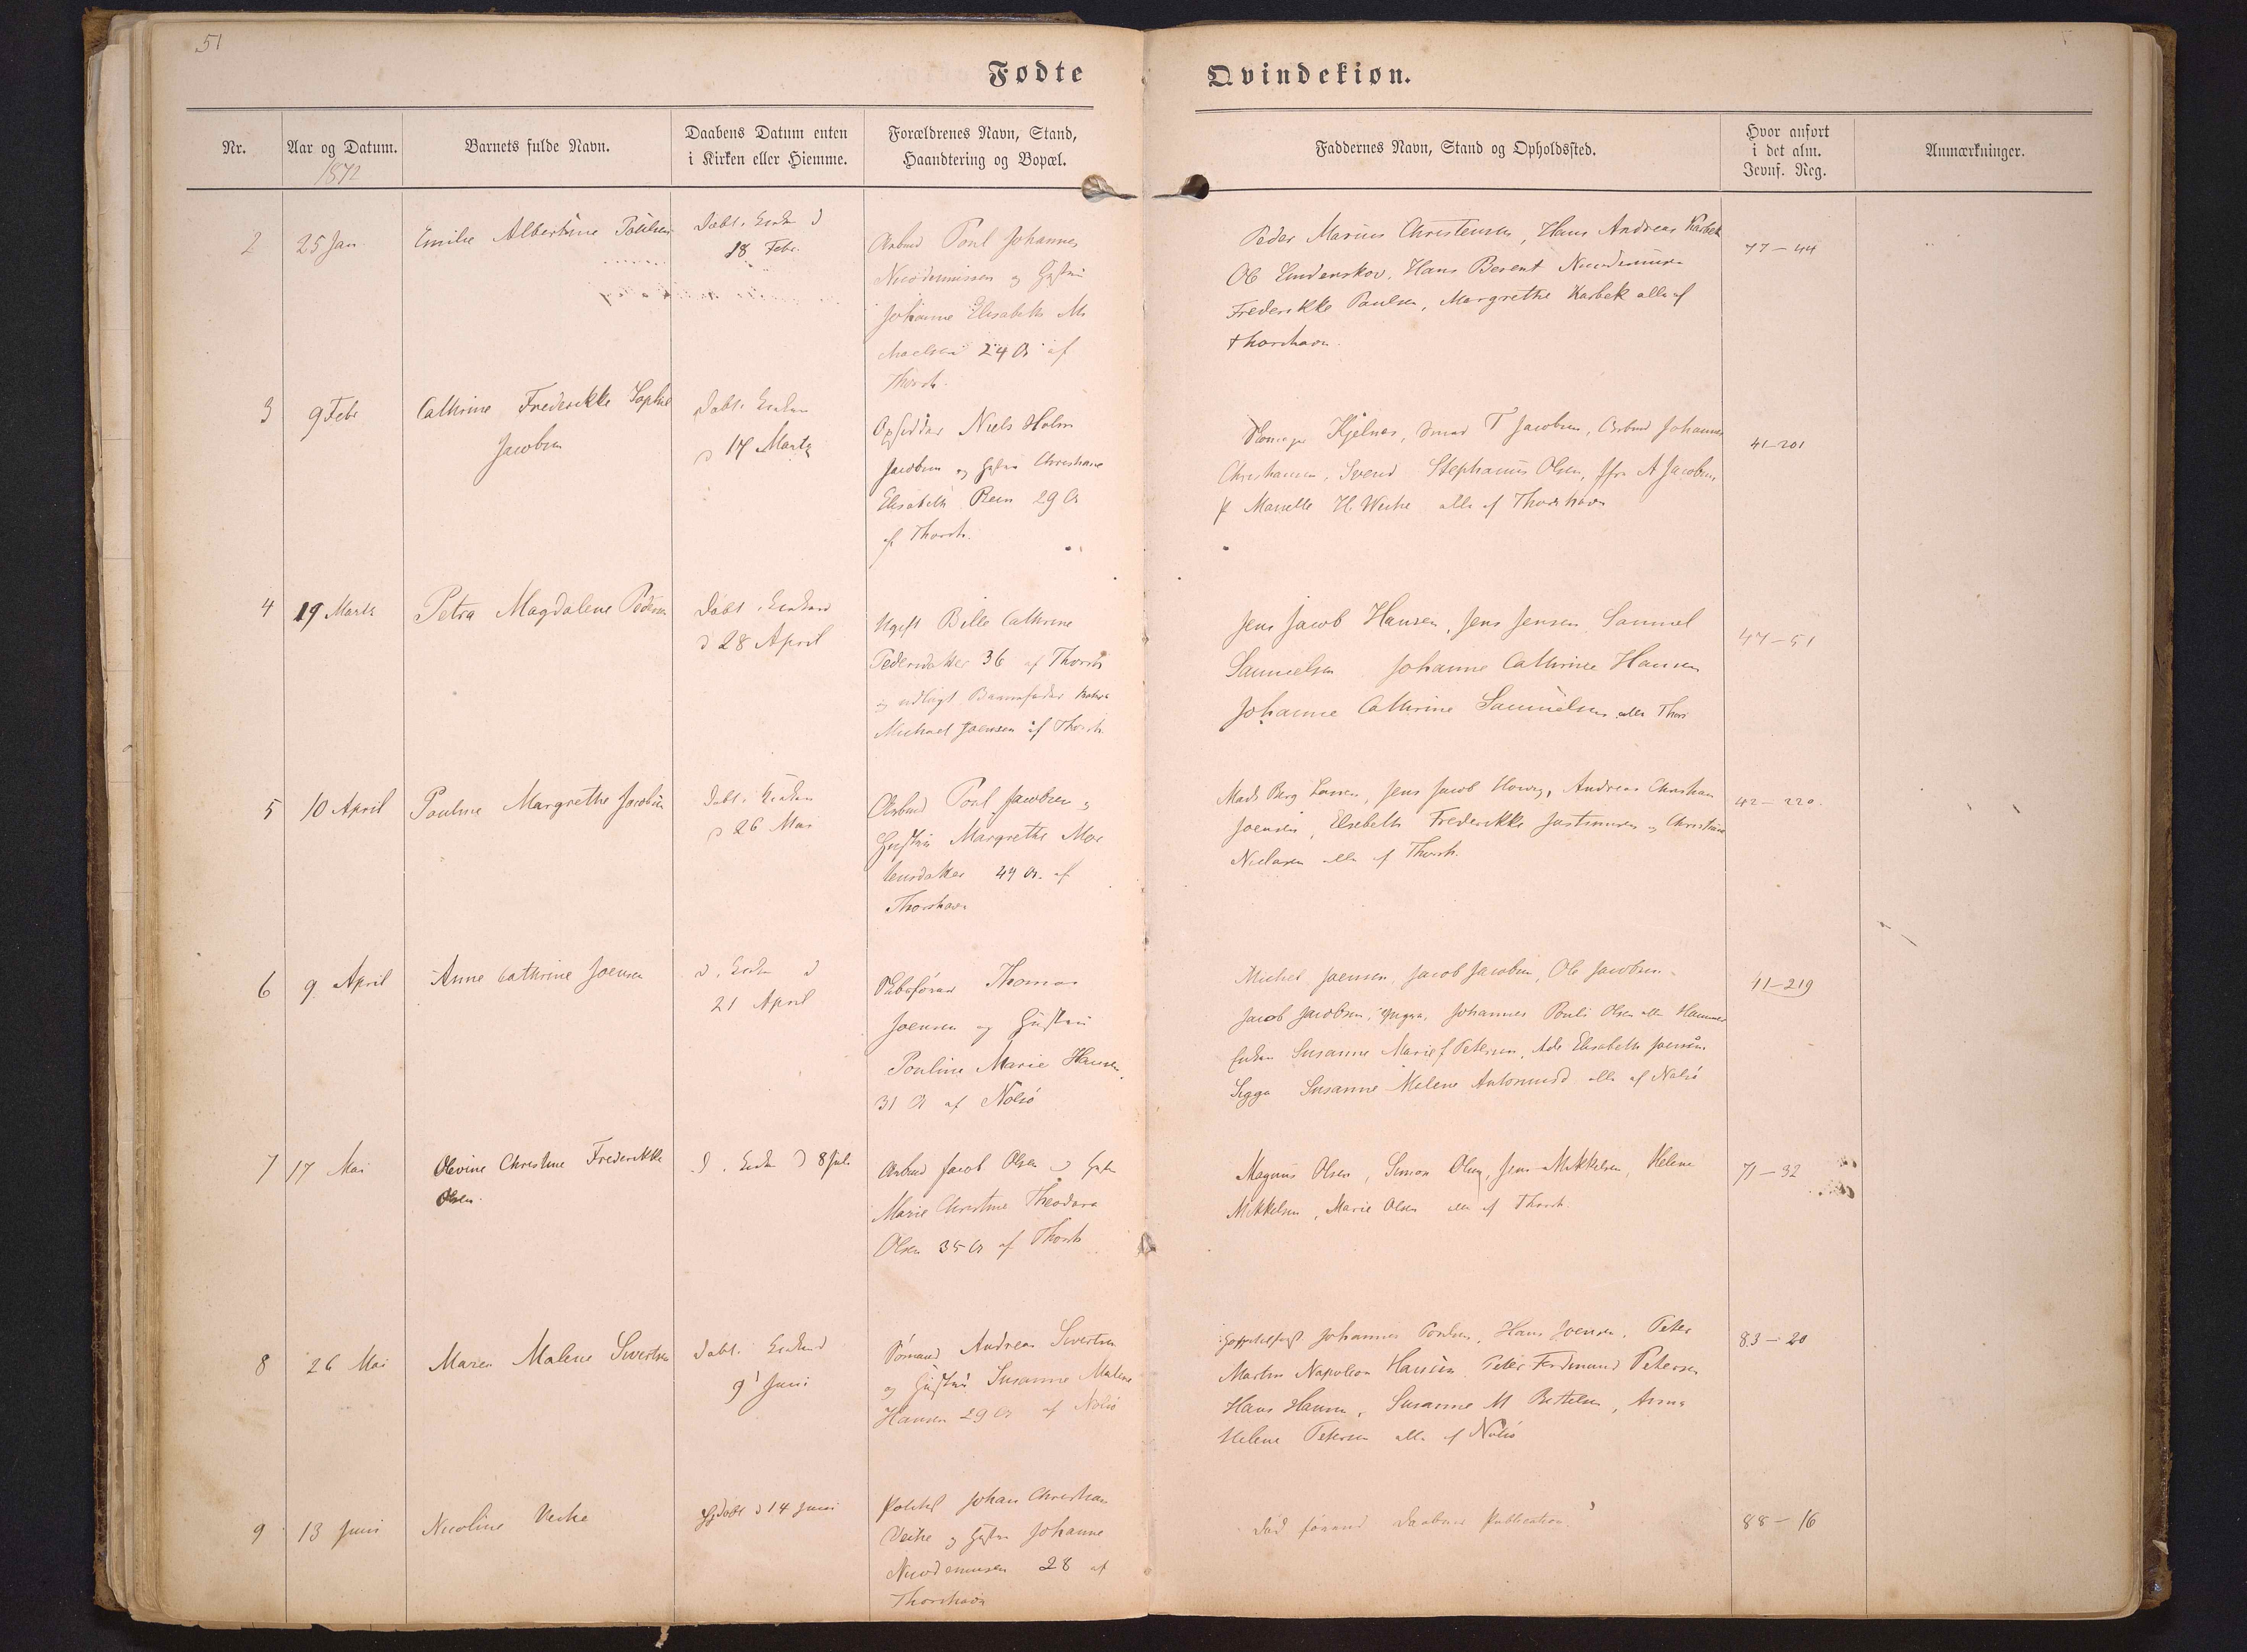 51
Fødte
Qvindekiøn.
Nr.
Aar og Datum.
1872
Barnets fulde Navn.
Daabens Datum enten
i Kirken eller Hiemme.
Forældrenes Navn, Stand,
Haandtering og Bopæl.
Faddernes Navn, Stand og Opholdssted.
Hvor anført
i det alm.
Jevnf. Reg.
Anmærkninger.
2
25 Jan.
Emilie Albertine Poulsen
Døbt i Kirken d
18 Febr.
Arbmd Poul Johannes
Nicodemussen og Hustru
Johanne Elisabeth M
24 Ar af
Thorsh.
Peder Marius Christensen, Hans Andreas Karbek
Ole Lindenskov, Hans Berent Nicodemusen
Frederikke Poulsen, Margrethe Karbek alle af
Thorshavn.
77–44
3
9 Febr
Cathrine Frederikke Sophie
Jacobsen
Døbt i Kirken
d 17 Marts
Opsidder Niels Holm
Jacobsen og Hustru Christiane
Elisabeth Rein 29 Ar
af Thorsh.
Kjelnes, Smed T Jacobsen, Arbmd Johannes
Christiansen, Svend Stephanus Olsen, A Jacobsen,
H. Weihe alle af Thorshavn
41–201
4
19 Marts
Petra Magdalene Pedersen
Døbt i Kirken
d 28 April
Ugift Bille Cathrine
Pedersdatter 36 af Thorsh
og udlagt Barnefader
Michael Joensen af Thorsh.
Jens Jacob Hansen, Jens Jensen Samuel
Samuelsen Johanne Cathrine Hansen
Johanne Cathrine Samuelsen alle Thor
47–51
5
10 April
Pouline Margrethe Jacobsen
Døbt i Kirken
d 26 Mai
Arbmd Poul Jacobsen og
Hustru Margrethe Mor
tensdatter 49 Ar. af
Thorshavn
Mads Berg Larsen, Jens Jacob Andreas Christian
Joensen, Elsebeth Frederikke Justinussen og Christine
Nielsen alle af Thorsh.
42–220.
6
9 April
Anne Cathrine Joensen
d. i Kirken d
21 April
Thomas
Joensen og Hustru
Pouline Marie Hansen,
31 Ar af Nolsø
Michel Joensen, Jacob Jacobsen, Ole Jacobsen
Jacob Jacobsen, Johannes Pouli Olsen alle
Susanne Marie J Petersen, Ada Elisabeth Joensen
Susanne Malene alle af Nolsø
41–219
7
17 Mai
Olevine Christine Frederikke
Olsen.
D. i Kirken d 8 Juli
Arbmd Jacob Olsen og Hustru
Marie Christine Theodora
Olsen 35 Ar af Thorsh
Magnus Olsen, Simon Olsen, Jens Mikkelsen, Helene
Mikkelsen, Marie Olsen alle af Thorsh.
71–32
8
26 Mai
Maren Malene Sivertsen
Døbt i Kirken d
9' Juni
Andreas Sivertsen
og Hustru Susanne Malene
Hansen 29 Ar af Nolsø
Johannes Poulsen, Hans Joensen, Peter
Martin Napoleon Hansen Peter Ferdinand Petersen
Hans Hansen, Susanne M Bertelsen, Anna
Helene Petersen alle af Nolsø
83–20
9
13 Juni
Nicoline Weihe
Hjdøbt d 14 Juni
Johan Christian
Weihe og Hustru Johanne
Nicodemusen 28 af
Thorshavn
Død førend Daabens Publication.
88–16